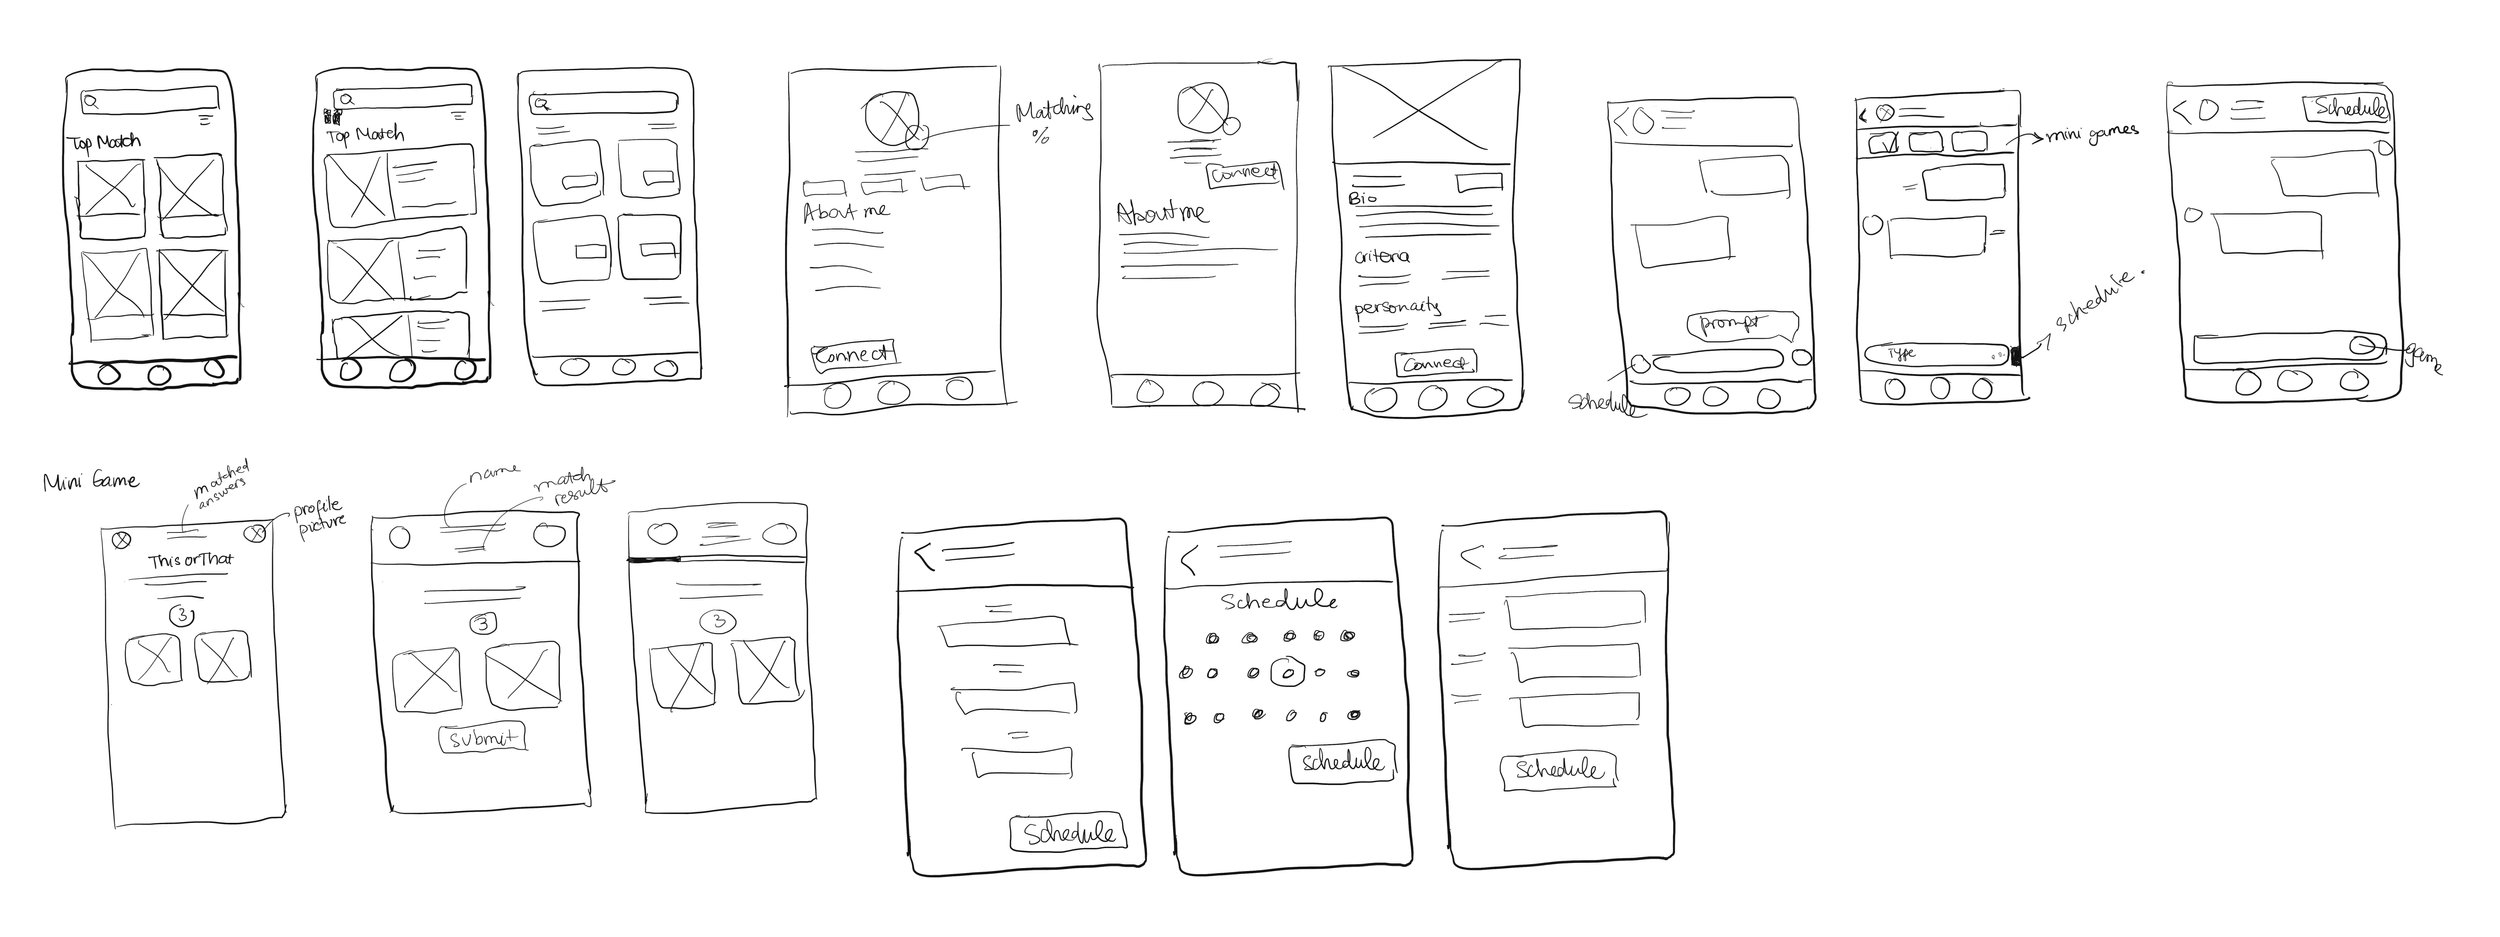 Top Match
Top Match
Matching
%
About me
Connect
Connect
About me
Bio
criteria
personaity
Connect
prompt
Schedule
mini games
Type
schedule.
Schedule
game
Mini Game
matched
answers
profile
picture
This or That
3
name
match
result
3
submit
3
Schedule
Schedule
schedule
Schedule